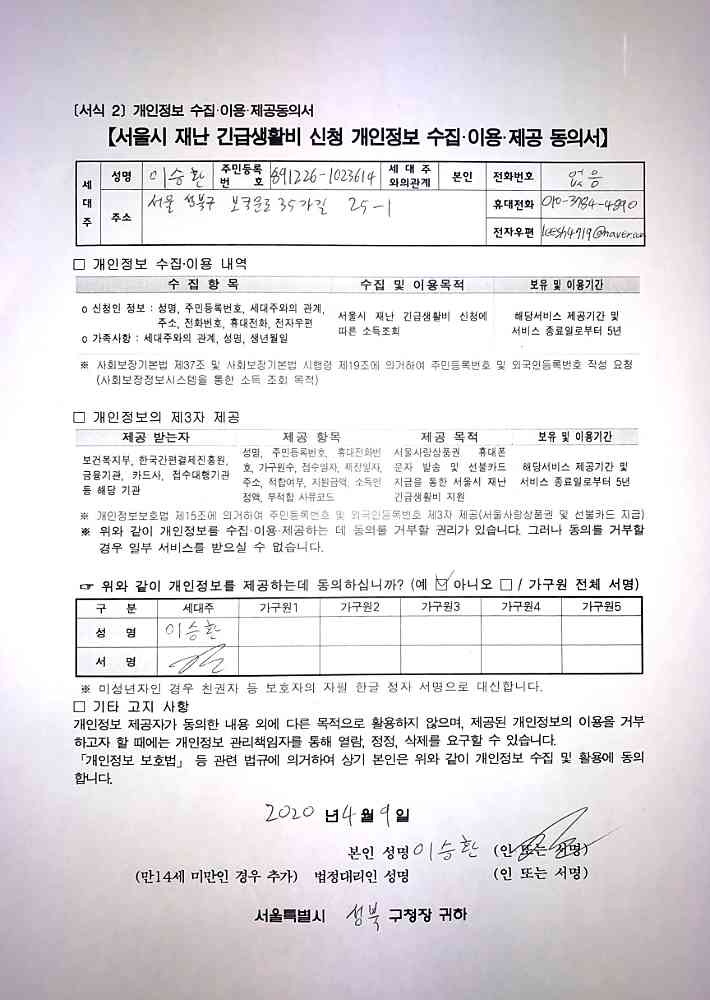 〔서식 2〕 개인정보 수집·이용·제공동의서
【서울시 재난 긴급생활비 신청 개인정보 수집·이용·제공 동의서】
세대주 성명 이승환 주민등록번호 891226-1023614 세대주와의관계 본인 전화번호 없음
주소 서울 성북구 보국문로35가길 25-1 휴대전화 010-3784-4890
전자우편
□ 개인정보 수집·이용 내역
수 집 항 목 수집 및 이용목적 보유 및 이용기간
o 신청인 정보 : 성명, 주민등록번호, 세대주와의 관계,
주소, 전화번호, 휴대전화, 전자우편
o 가족사항 : 세대주와의 관계, 성명, 생년월일
서울시 재난 긴급생활비 신청에
따른 소득조회
해당서비스 제공기간 및
서비스 종료일로부터 5년
※ 사회보장기본법 제37조 및 사회보장기본법 시행령 제19조에 의거하여 주민등록번호 및 외국인등록번호 작성 요청
(사회보장정보시스템을 통한 소득 조회 목적)
□ 개인정보의 제3자 제공
제공 받는자 제공 항목 제공 목적 보유 및 이용기간
보건복지부, 한국간편결제진흥원,
금융기관, 카드사, 접수대행기관
등 해당 기관
성명, 주민등록번호, 휴대전화번
호, 가구원수, 접수일자, 제장일자,
주소, 적합여부, 지원금액, 소득인
정액, 부적합 사유코드
서울사랑상품권 휴대폰
문자 발송 및 선불카드
지급을 통한 서울시 재난
긴급생활비 지원
해당서비스 제공기간 및
서비스 종료일로부터 5년
※ 개인정보보호법 제15조에 의거하여 주민등록번호 및 외국인등록번호 제3자 제공(서울사랑상품권 및 선불카드 지급)
※ 위와 같이 개인정보를 수집·이용·제공하는 데 동의를 거부할 권리가 있습니다. 그러나 동의를 거부할
경우 일부 서비스를 받으실 수 없습니다.
☞ 위와 같이 개인정보를 제공하는데 동의하십니까? (예 ☑ 아니오 □ / 가구원 전체 서명)
구 분 세대주 가구원1 가구원2 가구원3 가구원4 가구원5
성 명 이승환
서 명
※ 미성년자인 경우 친권자 등 보호자의 자필 한글 정자 서명으로 대신합니다.
□ 기타 고지 사항
개인정보 제공자가 동의한 내용 외에 다른 목적으로 활용하지 않으며, 제공된 개인정보의 이용을 거부
하고자 할 때에는 개인정보 관리책임자를 통해 열람, 정정, 삭제를 요구할 수 있습니다.
「개인정보 보호법」 등 관련 법규에 의거하여 상기 본인은 위와 같이 개인정보 수집 및 활용에 동의
합니다.
2020 년 4 월 9 일
본인 성명 이승환 (인 또는 서명)
(만14세 미만인 경우 추가) 법정대리인 성명 (인 또는 서명)
서울특별시 성북 구청장 귀하